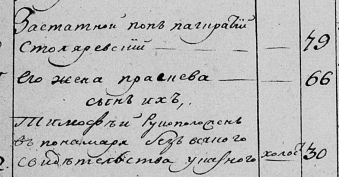 Застатной попъ пагкратий
Столяревский — — 79
его жена праскева — — 66
сынъ ихъ,
Тимофѣй Рукоположенъ
въ понамаря безъ всякого
свидѣтельства указного холостъ 30